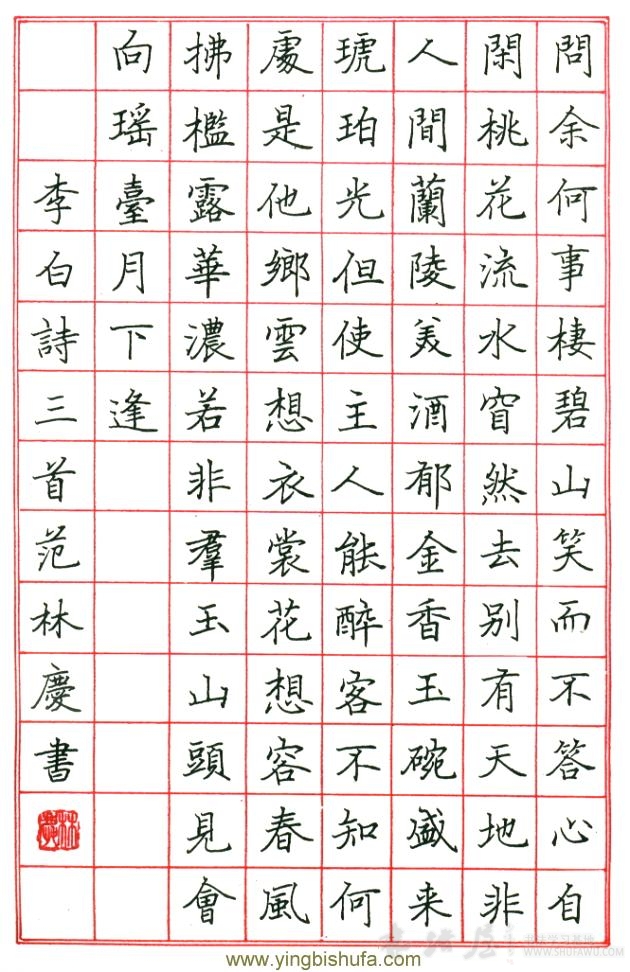 問余何事棲碧山笑而不答心自
閑桃花流水窅然去别有天地非
人間蘭陵美酒郁金香玉碗盛来
琥珀光但使主人能醉客不知何
處是他鄉雲想衣裳花想容春風
拂檻露華濃若非羣玉山頭見會
向瑶臺月下逢
李白詩三首范林慶書
林慶
书法学习基地
WWW.SHUFAWU.COM
www.yingbishufa.com